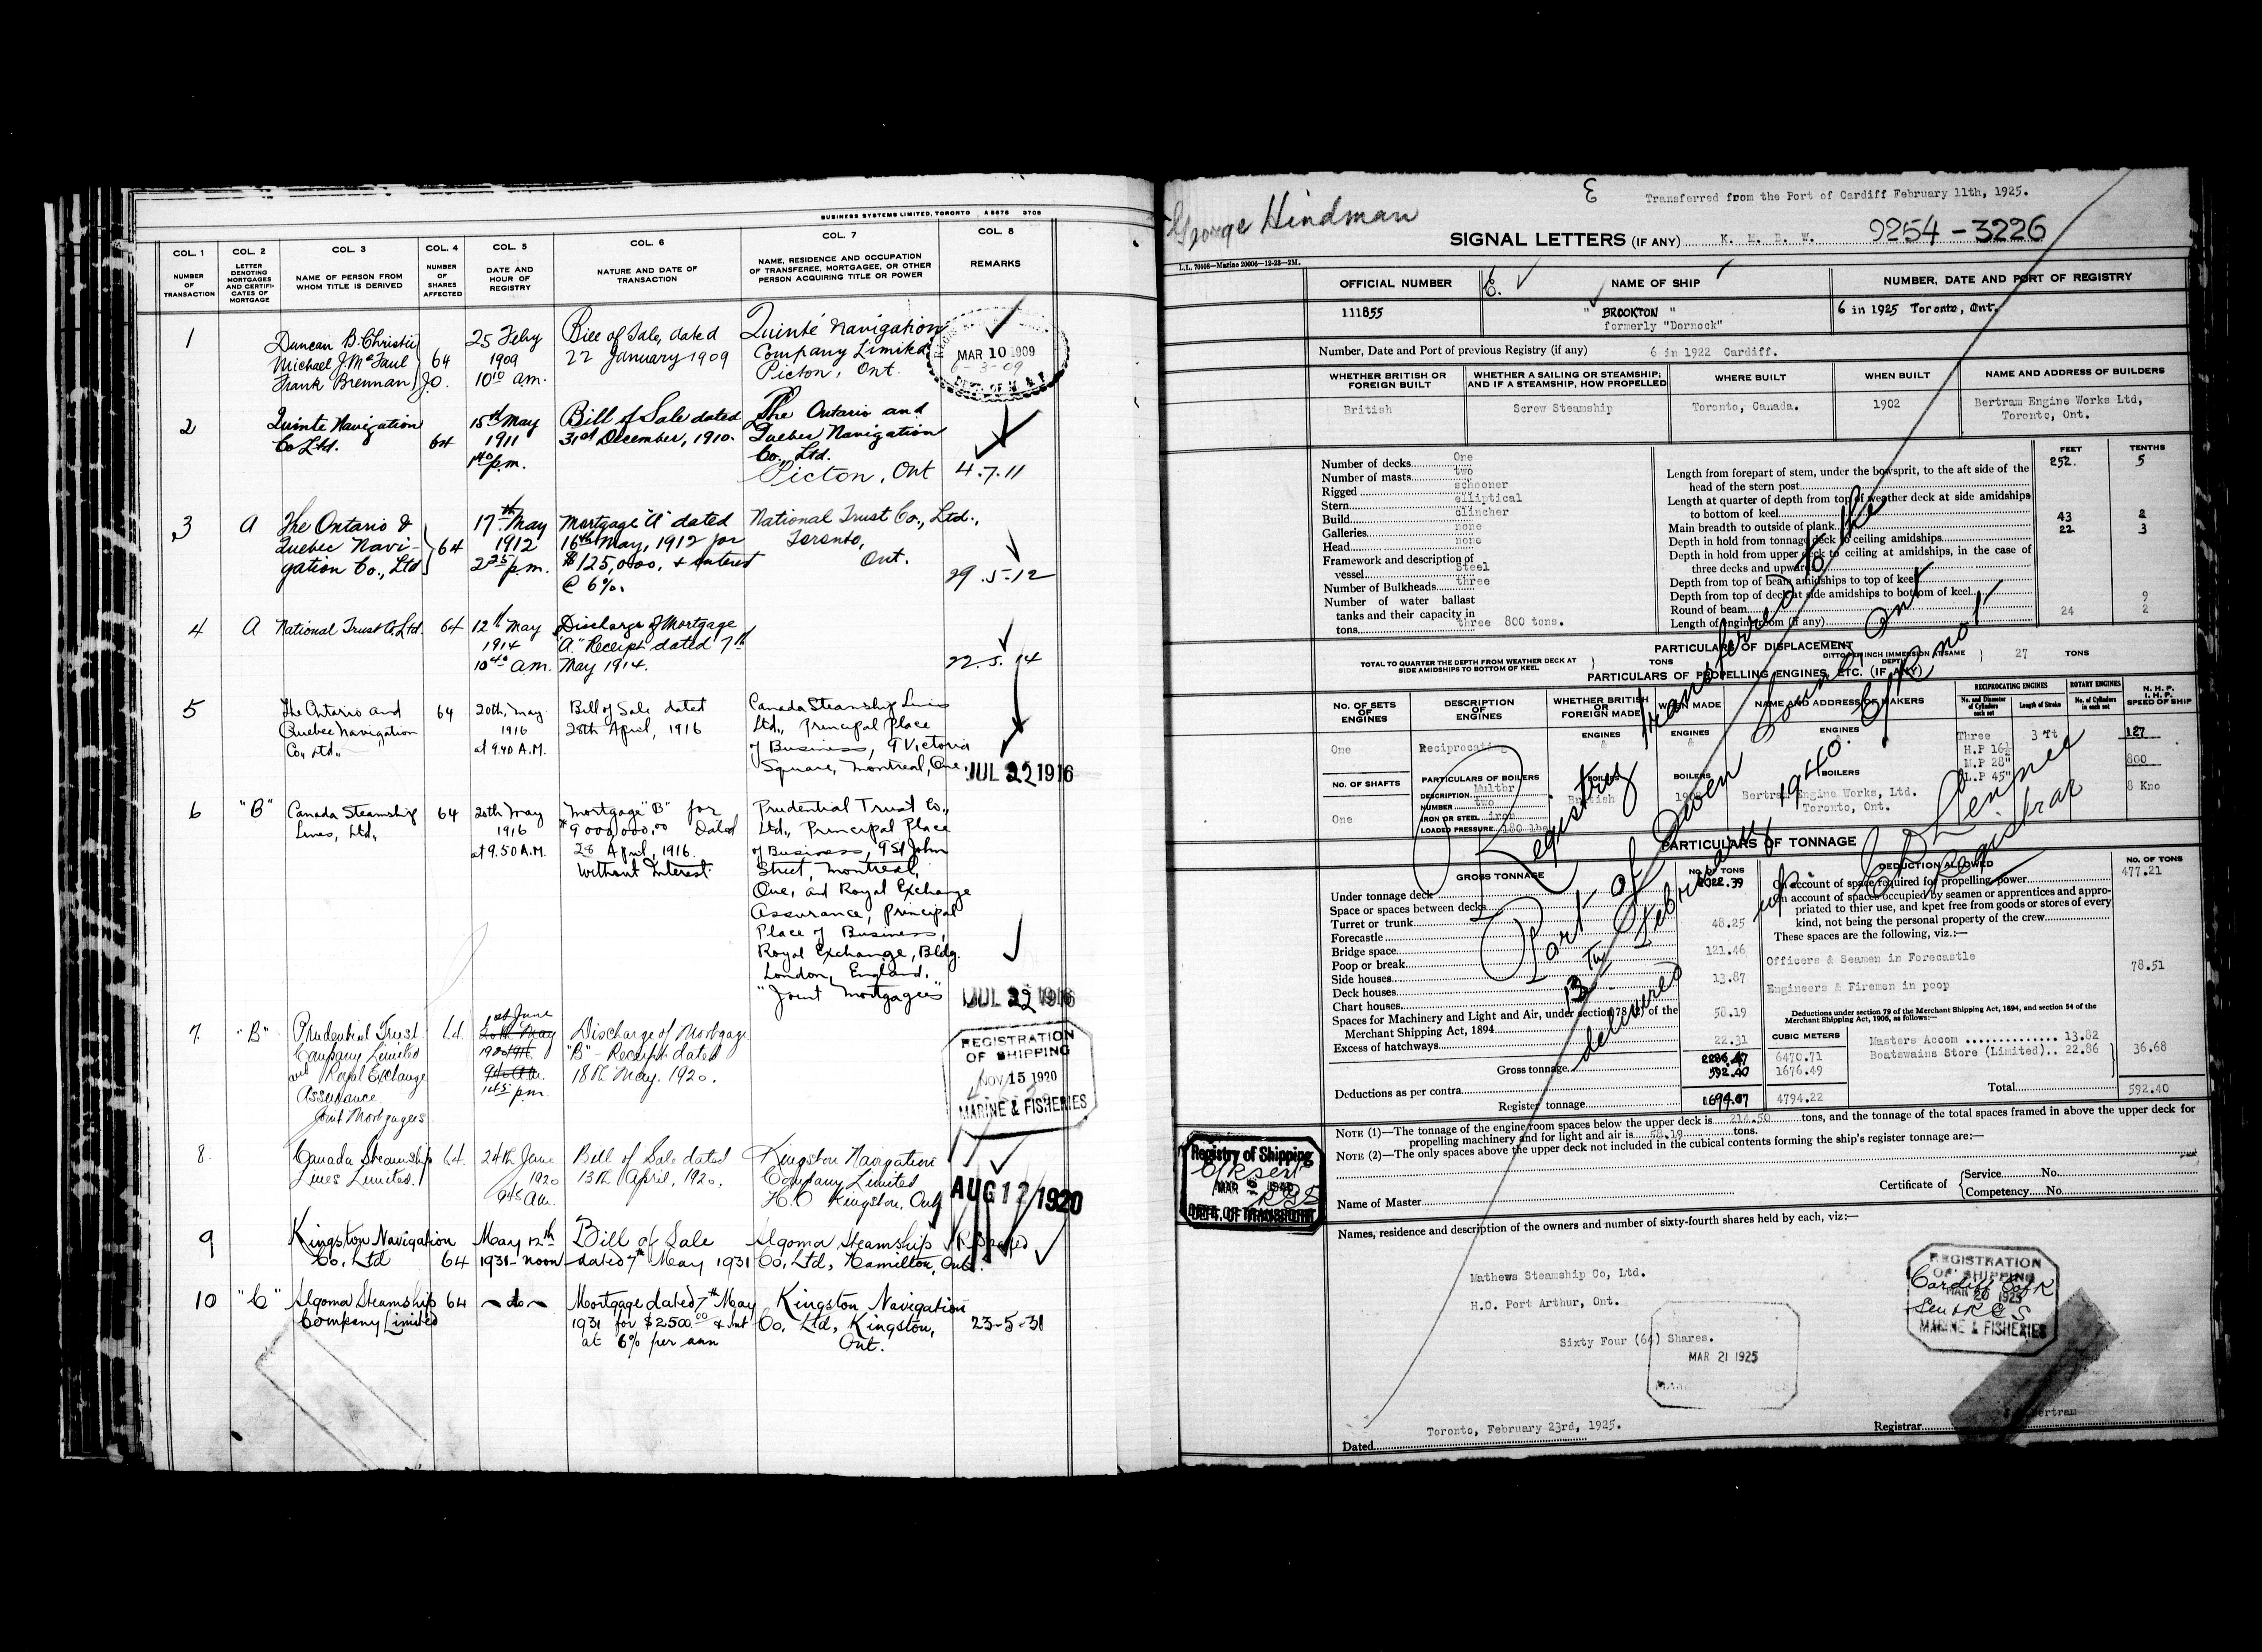 BUSINESS SYSTEMS LIMITED, TORONTO A 8878 3708
COL. 1 COL. 2 COL. 3 COL. 4 COL. 5 COL. 6 COL. 7 COL. 8
NUMBER OF TRANSACTION
LETTER DENOTING MORTGAGES AND CERTIFICATES OF MORTGAGE
NAME OF PERSON FROM WHOM TITLE IS DERIVED
NUMBER OF SHARES AFFECTED
DATE AND HOUR OF REGISTRY
NATURE AND DATE OF TRANSACTION
NAME, RESIDENCE AND OCCUPATION OF TRANSFEREE, MORTGAGEE, OR OTHER PERSON ACQUIRING TITLE OR POWER
REMARKS
1
Duncan B. Christie
Michael J. McFaul
Frank Brennan
64
J.O.
25 Feby
1909
10 10 am.
Bill of Sale, dated
22 January 1909
Quinté Navigation
Company Limited
Picton, Ont.
MAR 10 1909
6-3-09
2
Quinte Navigation
Co Ltd.
64
15th May
1911
1 40 p.m.
Bill of Sale dated
31st December, 1910.
The Ontario and
Quebec Navigation
Co., Ltd.
Picton, Ont
4.7.11
3
A
The Ontario &
Quebec Navi-
gation Co., Ltd
64
17th May
1912
2 35 p.m.
Mortgage "A" dated
16th May, 1912 for
$125,000. & interest
@ 6%.
National Trust Co., Ltd.,
Toronto,
Ont.
29.5.12
4
A
National Trust Co, Ltd.
64
12th May
1914
10 40 a.m.
Discharge of Mortgage
"A" Receipt dated 7th
May 1914.
22.5.14
5
The Ontario and
Quebec Navigation
Co., Ltd.,
64
20th, May
1916
at 9.40 A.M.
Bill of Sale dated
28th April, 1916
Canada Steamship Lines
Ltd., Principal Place
of Business, 9 Victoria
Square, Montreal, Que.
JUL 22 1916
6
"B"
Canada Steamship
Lines, Ltd.,
64
20th May
1916
at 9.50 A.M.
Mortgage "B" for
$9000,000.00 Dated
28 April, 1916.
Without Interest.
Prudential Trust Co.,
Ltd., Principal Place
of Business, 9 St John
Street, Montreal,
Que, and Royal Exchange
Assurance, Principal
Place of Business,
Royal Exchange, Bldg.
London, England.
"Joint Mortgagees"
JUL 22 1916
7.
"B"
Prudential Trust
Company Limited
and Royal Exchange
Assurance
Joint Mortgagees
64
1st June
20th May
p.m.
Discharge of Mortgage
"B" - Receipt dated
18th May. 1920.
REGISTRATION
OF SHIPPING
NOV 15 1920
MARINE & FISHERIES
8.
Canada Steamship
Lines Limited.
64
24th June
1920
9 45 a.m.
Bill of Sale dated
13th April, 1920.
Kingston Navigation
Company Limited
H.O Kingston, Ont
AUG 12 1920
9
Kingston Navigation
Co. Ltd
64
May 12th
1931 - noon
Bill of Sale
dated 7th May 1931
Algoma Steamship
Co, Ltd, Hamilton, Ont.
10
"C"
Algoma Steamship
Company Limited
64
- do -
Mortgage dated 7th May
1931 for $2500.00 & Int
at 6% per ann
Kingston Navigation
Co. Ltd, Kingston,
Ont.
23-5-31
George Hindman
E
Transferred from the Port of Cardiff February 11th, 1925.
SIGNAL LETTERS (IF ANY) 9254-3226
L.L. 70108—Marine 20006—12-23—2M.
OFFICIAL NUMBER NAME OF SHIP NUMBER, DATE AND PORT OF REGISTRY
111855
" BROOKTON "
formerly "Dornock"
6 in 1925 Toronto, Ont.
Number, Date and Port of previous Registry (if any) 6 in 1922 Cardiff.
WHETHER BRITISH OR FOREIGN BUILT
WHETHER A SAILING OR STEAMSHIP; AND IF A STEAMSHIP, HOW PROPELLED
WHERE BUILT
WHEN BUILT
NAME AND ADDRESS OF BUILDERS
British
Screw Steamship
Toronto, Canada.
1902
Bertram Engine Works Ltd,
Toronto, Ont.
FEET TENTHS
Number of decks One
Number of masts two
Rigged schooner
Stern elliptical
Build clincher
Galleries none
Head none
Framework and description of
vessel Steel
Number of Bulkheads three
Number of water ballast
tanks and their capacity in
tons three 800 tons.
Length from forepart of stem, under the bowsprit, to the aft side of the
head of the stern post 252. 5
Length at quarter of depth from top of weather deck at side amidships
to bottom of keel
Main breadth to outside of plank 43 2
Depth in hold from tonnage deck to ceiling amidships 22 3
Depth in hold from upper deck to ceiling at amidships, in the case of
three decks and upwards
Depth from top of beam amidships to top of keel
Depth from top of deck at side amidships to bottom of keel
Round of beam 9
Length of engine room (if any) 24 2
PARTICULARS OF DISPLACEMENT
TOTAL TO QUARTER THE DEPTH FROM WEATHER DECK AT SIDE AMIDSHIPS TO BOTTOM OF KEEL } TONS
DITTO PER INCH IMMERSION AT SAME DEPTH } 27 TONS
PARTICULARS OF PROPELLING ENGINES, ETC. (IF ANY)
NO. OF SETS OF ENGINES
DESCRIPTION OF ENGINES
WHETHER BRITISH OR FOREIGN MADE
WHEN MADE
NAME AND ADDRESS OF MAKERS
RECIPROCATING ENGINES
No. and Diameter of Cylinders each set
Length of Stroke
ROTARY ENGINES
No. of Cylinders in each set
N. H. P.
I. H. P.
SPEED OF SHIP
ENGINES ENGINES ENGINES
One
Reciprocating
Three
H.P 16½
M.P 28"
L.P 45"
3 ft
127
800
8 Kno
NO. OF SHAFTS
One
PARTICULARS OF BOILERS
DESCRIPTION Multbr
NUMBER two
IRON OR STEEL iron
LOADED PRESSURE 180 lbs
BOILERS BOILERS BOILERS
British
Bertram Engine Works, Ltd.
Toronto, Ont.
PARTICULARS OF TONNAGE
GROSS TONNAGE NO. OF TONS
Under tonnage deck 2022.39
Space or spaces between decks
Turret or trunk
Forecastle 48.25
Bridge space
Poop or break 121.46
Side houses
Deck houses 13.87
Chart houses
Spaces for Machinery and Light and Air, under section 78 (1) of the
Merchant Shipping Act, 1894 58.19
Excess of hatchways 22.31
Gross tonnage 2286.47 6470.71
Deductions as per contra 592.40 1676.49
Register tonnage 1694.07 4794.22
CUBIC METERS
DEDUCTION ALLOWED NO. OF TONS
On account of space required for propelling power 477.21
On account of spaces occupied by seamen or apprentices and appro-
priated to thier use, and kpet free from goods or stores of every
kind, not being the personal property of the crew
These spaces are the following, viz.:—
Officers & Seamen in Forecastle
78.51
Engineers & Firemen in poop
Deductions under section 79 of the Merchant Shipping Act, 1894, and section 54 of the
Merchant Shipping Act, 1906, as follows:—
Masters Accom .............. 13.82
Boatswains Store (Limited).. 22.86
36.68
Total 592.40
NOTE (1)—The tonnage of the engine room spaces below the upper deck is 214.50 tons, and the tonnage of the total spaces framed in above the upper deck for
propelling machinery and for light and air is 58.19 tons.
NOTE (2)—The only spaces above the upper deck not included in the cubical contents forming the ship's register tonnage are:—
Name of Master
Certificate of { Service No.
Competency No.
Names, residence and description of the owners and number of sixty-fourth shares held by each, viz:—
Mathews Steamship Co, Ltd.
H.O. Port Arthur, Ont.
Sixty Four (64) Shares.
MAR 21 1925
REGISTRATION
OF SHIPPING
MAR 26 1925
MARINE & FISHERIES
Registry of Shipping
DEPT. OF TRANSPORT
Registry transferred to the
Port of Owen Sound, Ont
13th February 1940.
Registrar
Dated Toronto, February 23rd, 1925.
Registrar Bertram